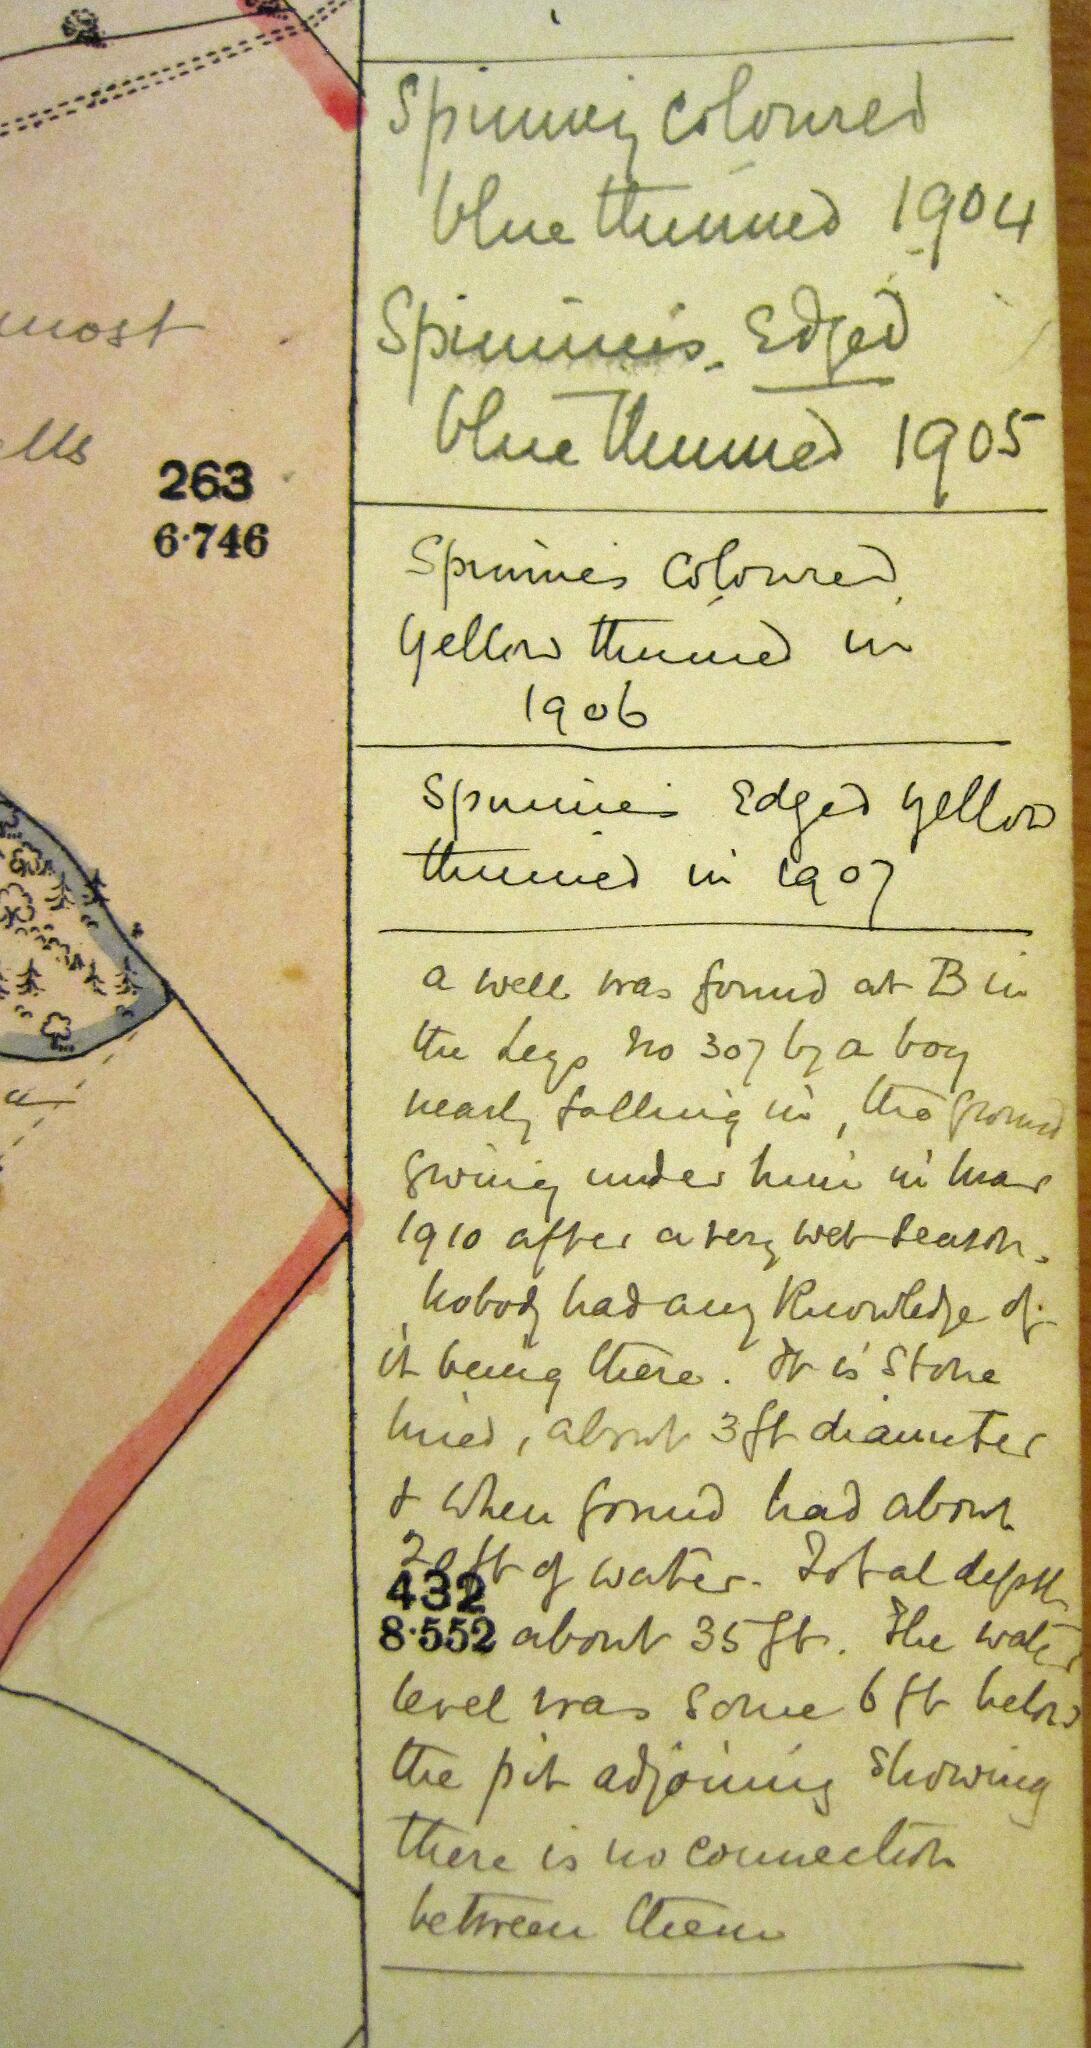 Spinney coloured
blue thinned 1904
Spinnies Edged
blue thinned 1905
most
ells
263
6·746
Spinnies coloured
yellow thinned in
1906
Spinnies Edged yellow
thinned in 1907
a well was found at B in
the Legs No 307 by a boy
nearly falling in, the ground
giving under him in Mar
1910 after a very wet season.
Nobody had any Knowledge of
it being there. It is stone
lined, about 3 ft diameter
& when found had about
20 ft of water. Total depth
432
8·552
about 35 ft. The water
level was some 6 ft below
the pit adjoining showing
there is no connection
between them